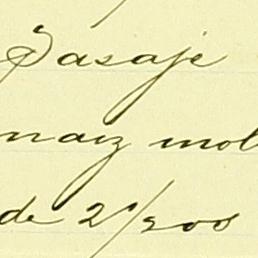 Pasaje
maiz mol
de 2"/200